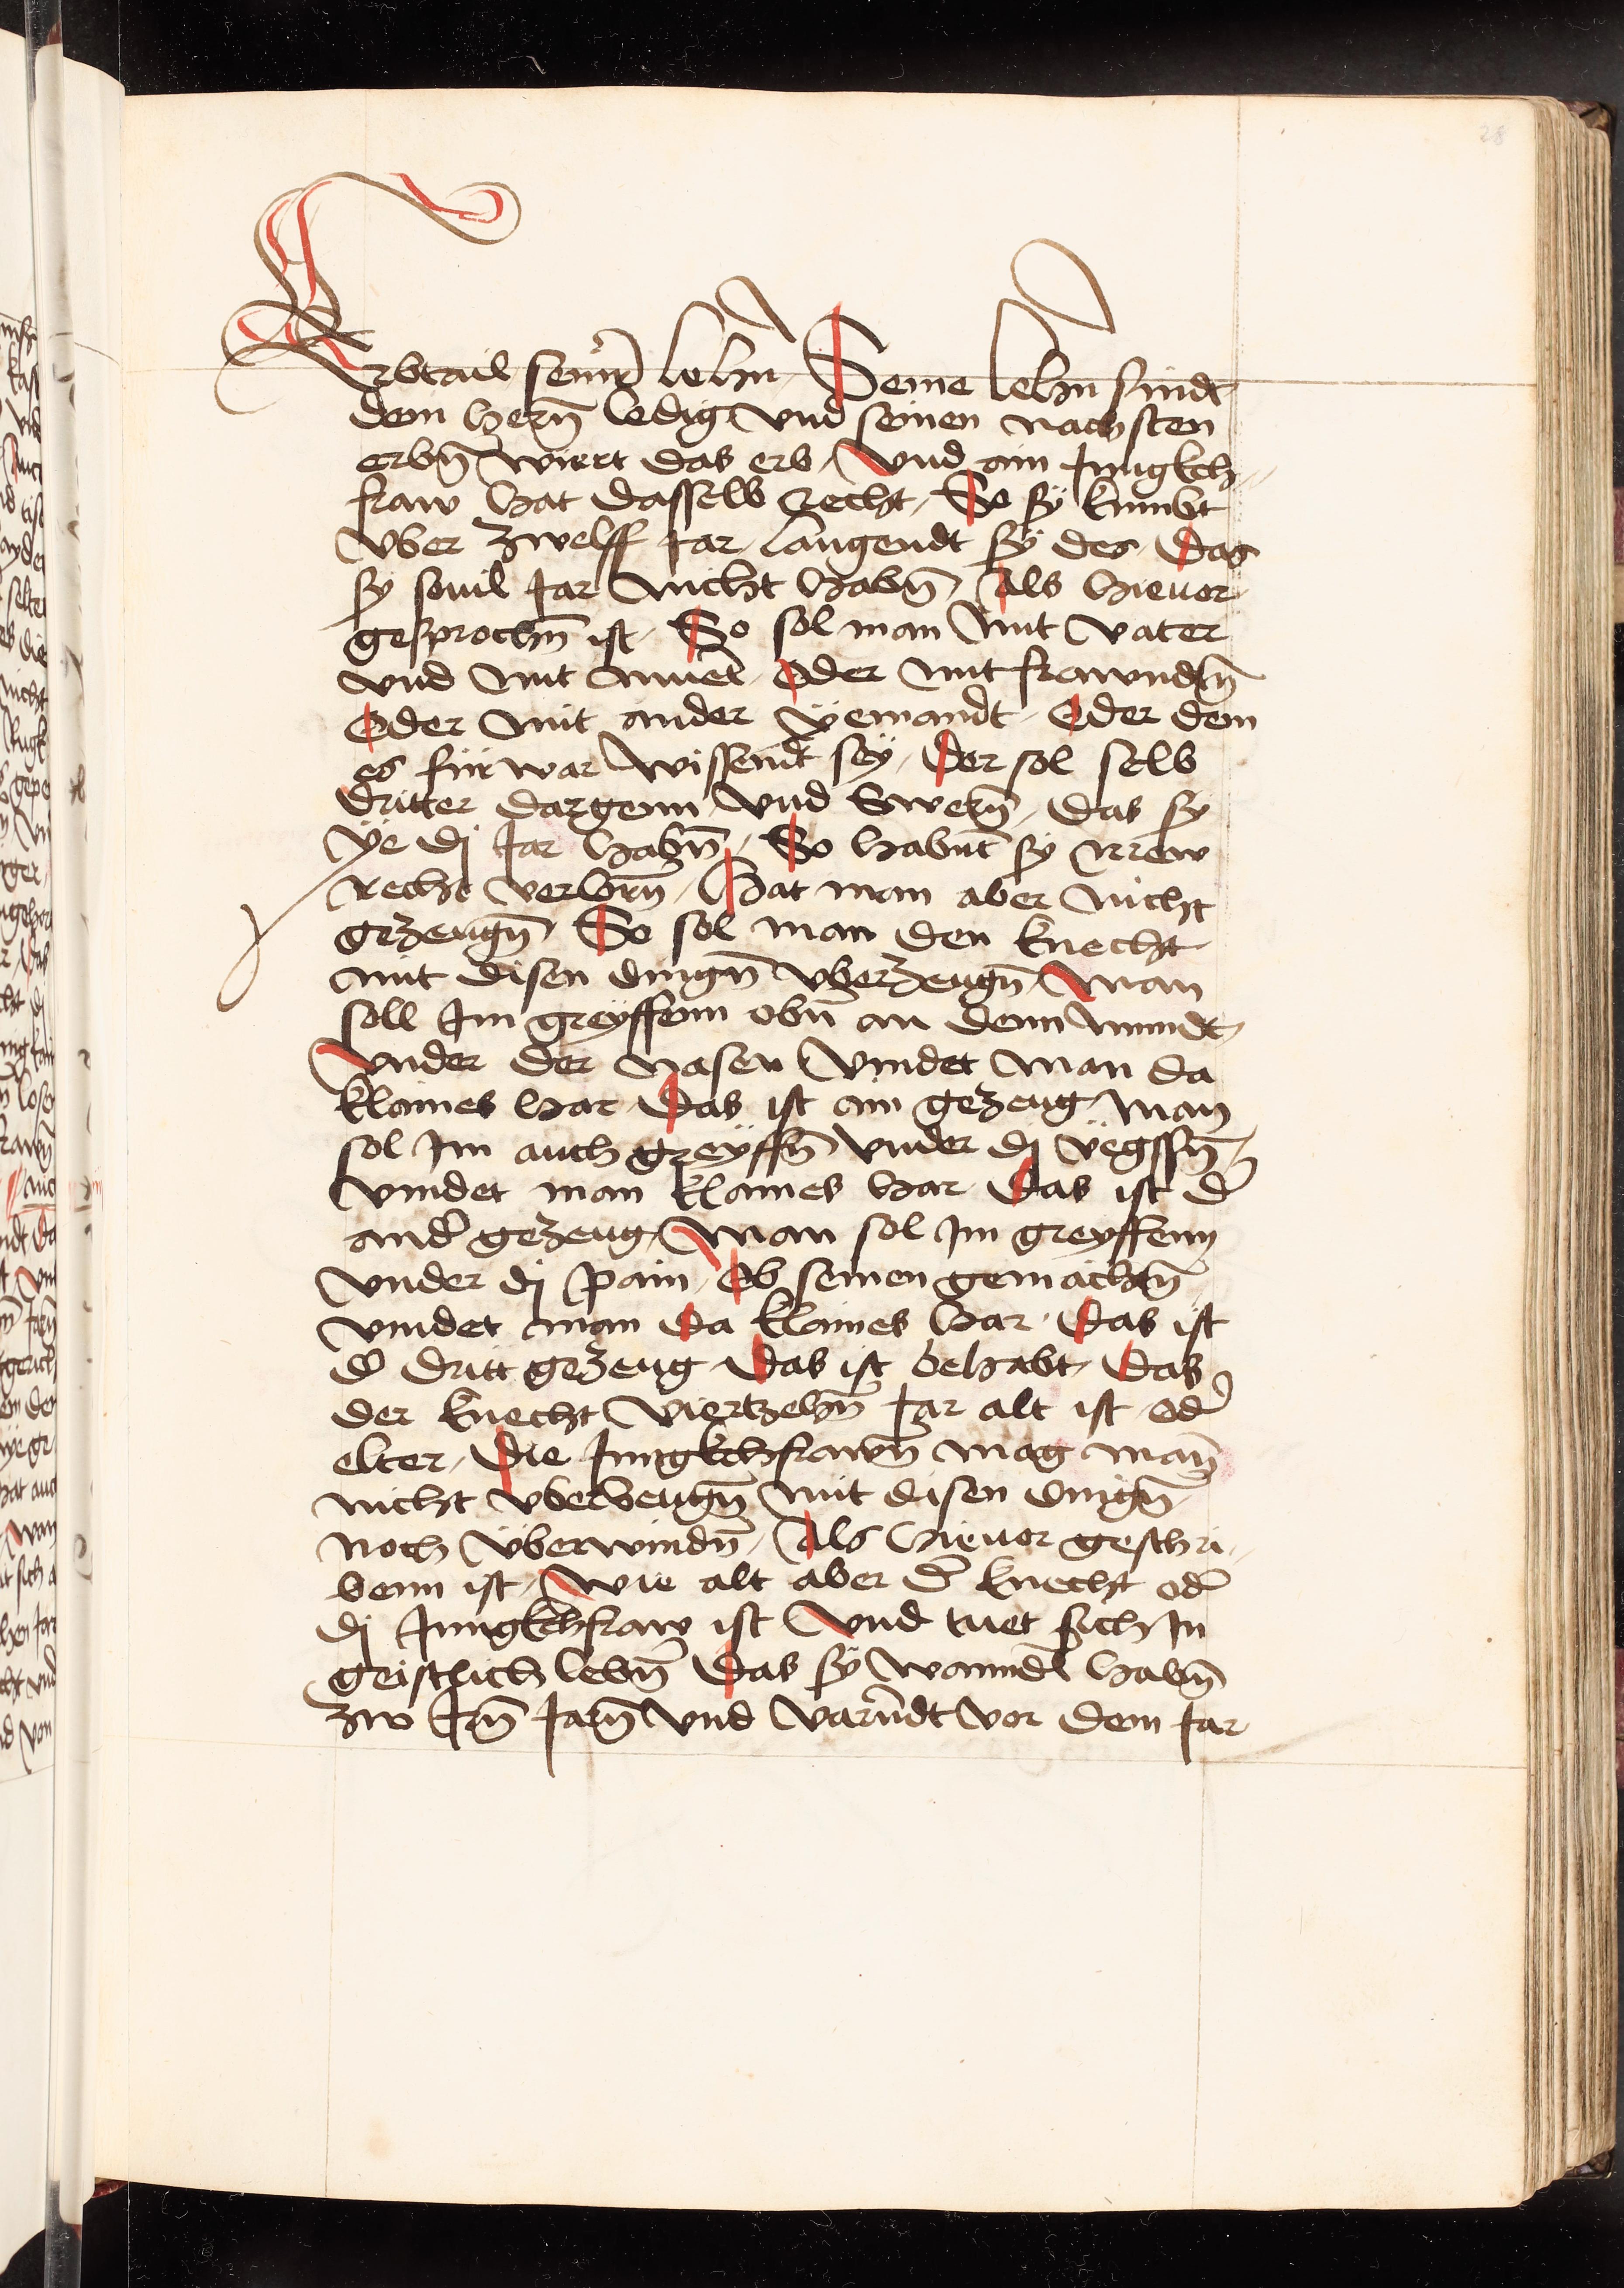 28
Erbtail seinr̄ lehn̄ / Seine lehn sindt
dem hern̄ ledig vnd seinen nachsten
erbn̄ wiert das erb / Vnd ain Jungkch//
fraw hat dasselb recht / So sÿ kumbt
vber zwelff Jar / laugendt sÿ des / das
sy souil Jar nicht habn̄ / Als hieuor
gesprochn̄ ist / So sol man mit vater
vnd mit muet̄ / Oder mit frawndtn̄
Oder mit ander yemandt / Oder dem
es für war wissent sey / Der sol selb
dritter dargenn vnd swern̄ / das sy
ÿe dj Jar habn̄ / So habnt sÿ irrew
recht verlorn̄ / Hat man aber nicht
gezeugn̄ So sol man den knecht
mit disen dingn̄ vberzeugn̄ / Man
soll Im greyffenn obn̄ an denn mundt /
Vnder der nasen vindet man da
klaines har / Das ist ain gezeug / man
sol Im auch greyffn̄ vnder dj vegssn̄ /
vindet man klaines har / Das ist d̄
and̄ gezeug / Man sol Im greyffenn
vnder dj pain / Ob seinen gemachtn̄
vindet man da klaines har / Das ist
d̄ dritt gezeug / Das ist behabt / Das
der knecht viertzehn̄ Jar alt ist / od̄
elter / Die Jungkchfrawn̄ mag man̄
nicht vberzeugn̄ mit disen dingn̄ /
noch überwindn̄ / Als hieuor geschri//
benn ist / Wie alt aber d̄ knecht od̄
dj Jungkchfraw ist Vnd tuet sich In
geistlich lebn̄ Das sÿ wanndl habn̄
zw Irn̄ Jarn̄ vnd varn̄dt vor dem Jar